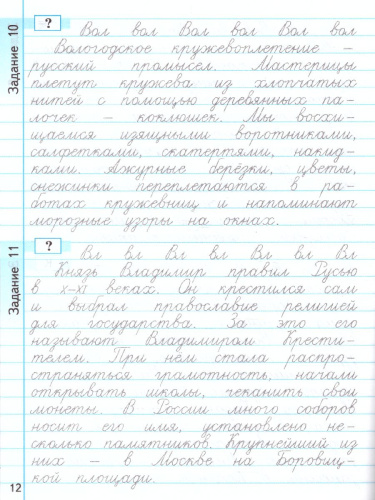 Задание 10
?
Вол вол Вол вол Вол вол
Вологодское кружевоплетение –
русский промысел. Мастерицы
плетут кружева из хлопчатых
нитей с помощью деревянных па-
лочек – коклюшек. Мы восхи-
щаемся изящными воротниками,
салфетками, скатертями, накид-
ками. Ажурные берёзки, цветы,
снежинки переплетаются в ра-
ботах кружевниц и напоминают
морозные узоры на окнах.
Задание 11
?
Вл вл Вл вл Вл вл Вл
Князь Владимир правил Русью
в X-XI веках. Он крестился сам
и выбрал православие религией
для государства. За это его
называют Владимиром Крести-
телем. При нём стала распро-
страняться грамотность, начали
открывать школы, чеканить свои
монеты. В России много соборов
носит его имя, установлено не-
сколько памятников. Крупнейший из
них – в Москве на Боровиц-
кой площади.
12